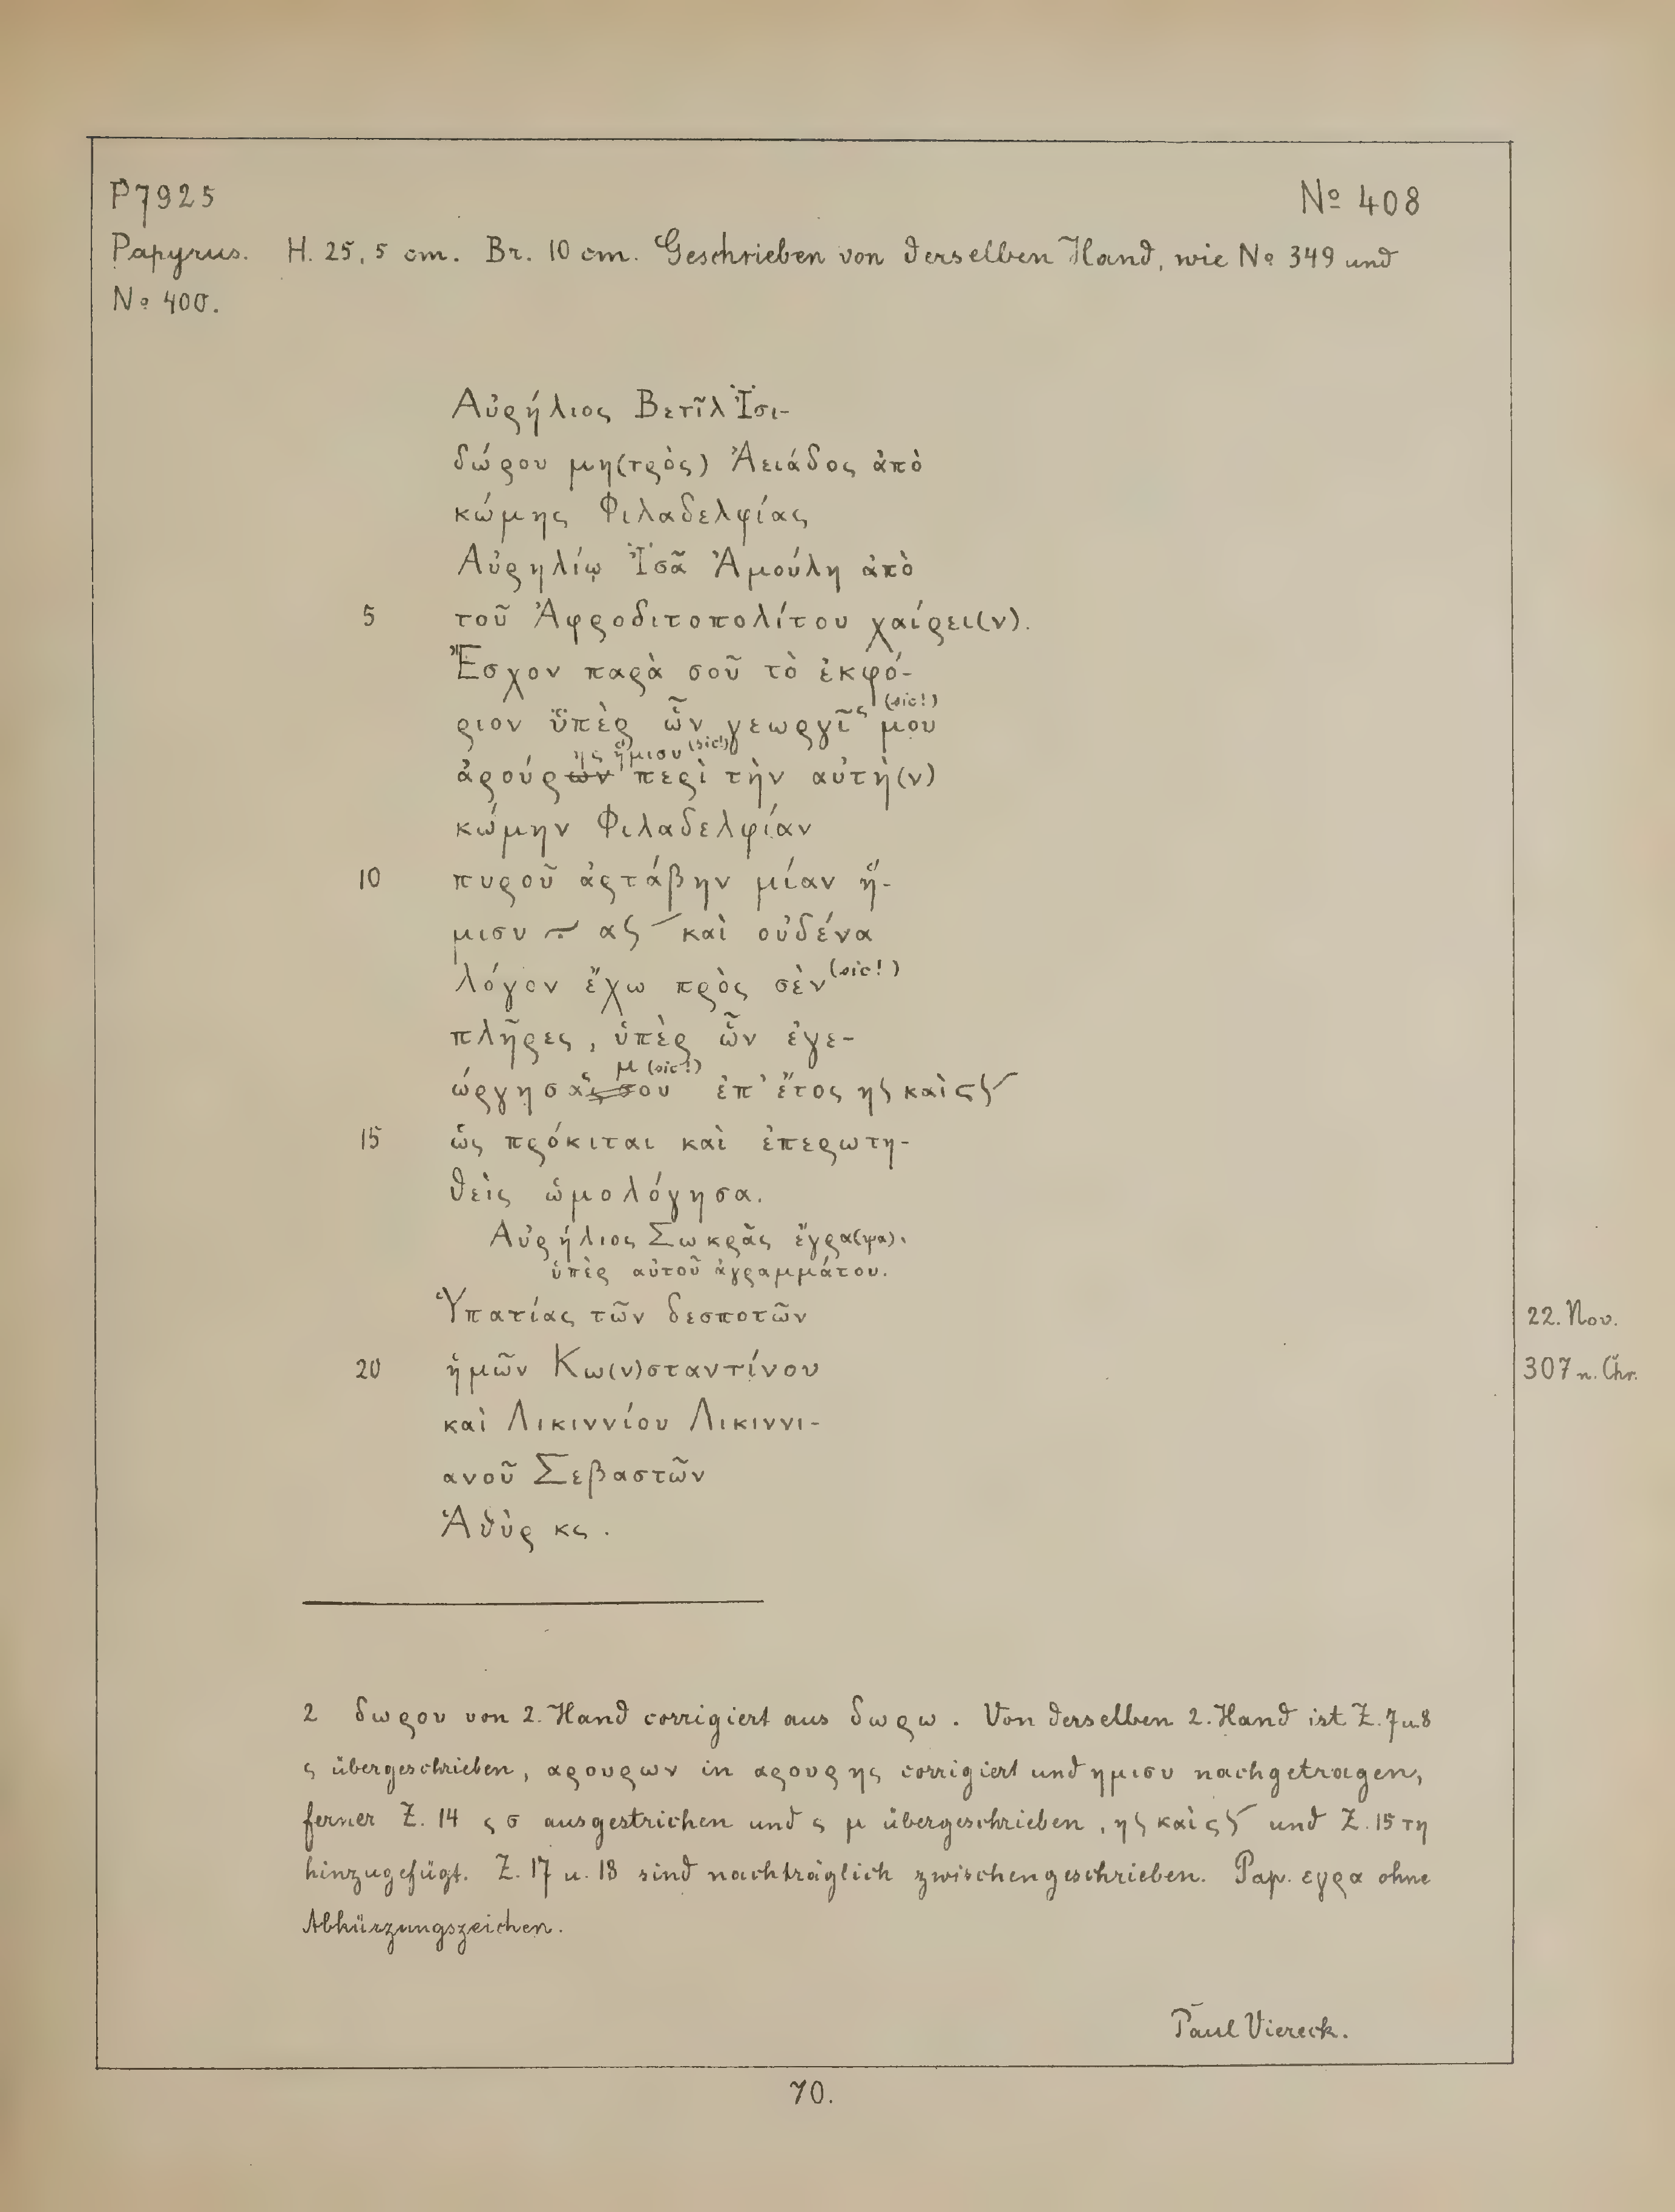 P 7925 № 408
Papyrus. H. 25,5 cm. Br. 10 cm. Geschrieben von derselben Hand, wie № 349 und
№ 400.
Αὐρήλιος Βετῖλ Ἰ̈σι-
δώρου μη(τρὸς) Ἀειάδος ἀπὸ
κώμης Φιλαδελφίας
Αὐρηλίῳ Ἰ̈σᾶ Ἀμούλη ἀπὸ
5 τοῦ Ἀφροδιτοπολίτου χαίρει(ν).
Ἔσχον παρὰ σοῦ τὸ ἐκφό-
(sic!)
ριον ὑ̈πὲρ ὧν γεωργῖς μου
ης ἥμισυ (sic!)
ἀρούρων περὶ τὴν αὐτὴ(ν)
κώμην Φιλαδελφίαν
10 πυροῦ ἀρτάβην μίαν ἥ-
μισυ ∸ αϚ καὶ οὐδένα
λόγον ἔχω πρὸς σὲν (sic!)
πλῆρες, ὑπὲρ ὧν ἐγε-
ς μ (sic!)
ώργησας σου ἐπ' ἔτος ηϚ καὶ ϛϚ
15 ὡς πρόκιται καὶ ἐπερωτη-
θεὶς ὡμολόγησα.
Αὐρήλιος Σωκρᾶς ἔγρα(ψα).
ὑπὲρ αὐτοῦ ἀγραμμάτου.
Ὑπατίας τῶν δεσποτῶν 22. Nov.
20 ἡμῶν Κω(ν)σταντίνου 307 n. Chr.
καὶ Λικιννίου Λικιννι-
ανοῦ Σεβαστῶν
Ἁθὺρ κϛ.
2 δωρου von 2. Hand corrigiert aus δωρω. Von derselben 2. Hand ist Z. 7 u. 8
ς übergeschrieben, αρουρων in αρουρης corrigiert und ημισυ nachgetragen,
ferner Z. 14 ς σ ausgestrichen und ς μ übergeschrieben, ηϚ καὶ ϛϚ und Z. 15 τη
hinzugefügt. Z. 17 u. 18 sind nachträglich zwischengeschrieben. Pap. εγρα ohne
Abkürzungszeichen.
Paul Viereck.
70.